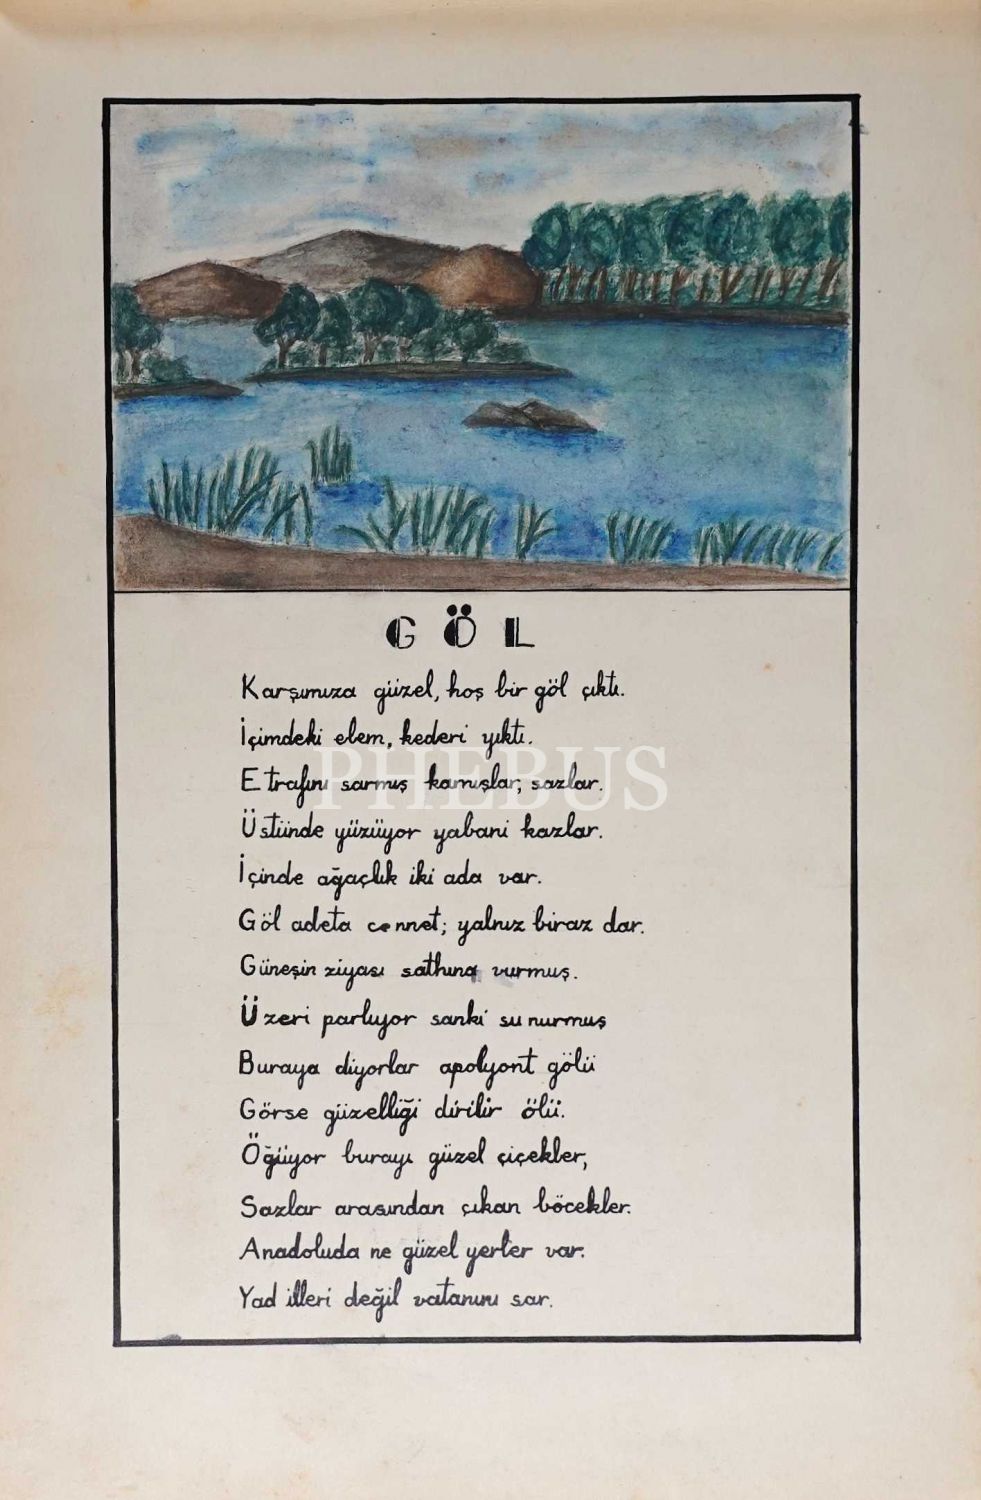 GÖL
Karşımıza güzel, hoş bir göl çıktı.
İçimdeki elem, kederi yıktı.
Etrafını sarmış kamışlar, sazlar.
PHEBUS
Üstünde yüzüyor yabani kazlar.
İçinde ağaçlık iki ada var.
Göl adeta cennet; yalnız biraz dar.
Güneşin ziyası sathına vurmuş.
Üzeri parlıyor sanki su nurmuş
Buraya diyorlar apolyont gölü
Görse güzelliği dirilir ölü.
Öğüyor burayı güzel çiçekler,
Sazlar arasından çıkan böcekler.
Anadoluda ne güzel yerler var.
Yad illeri değil vatanını sar.